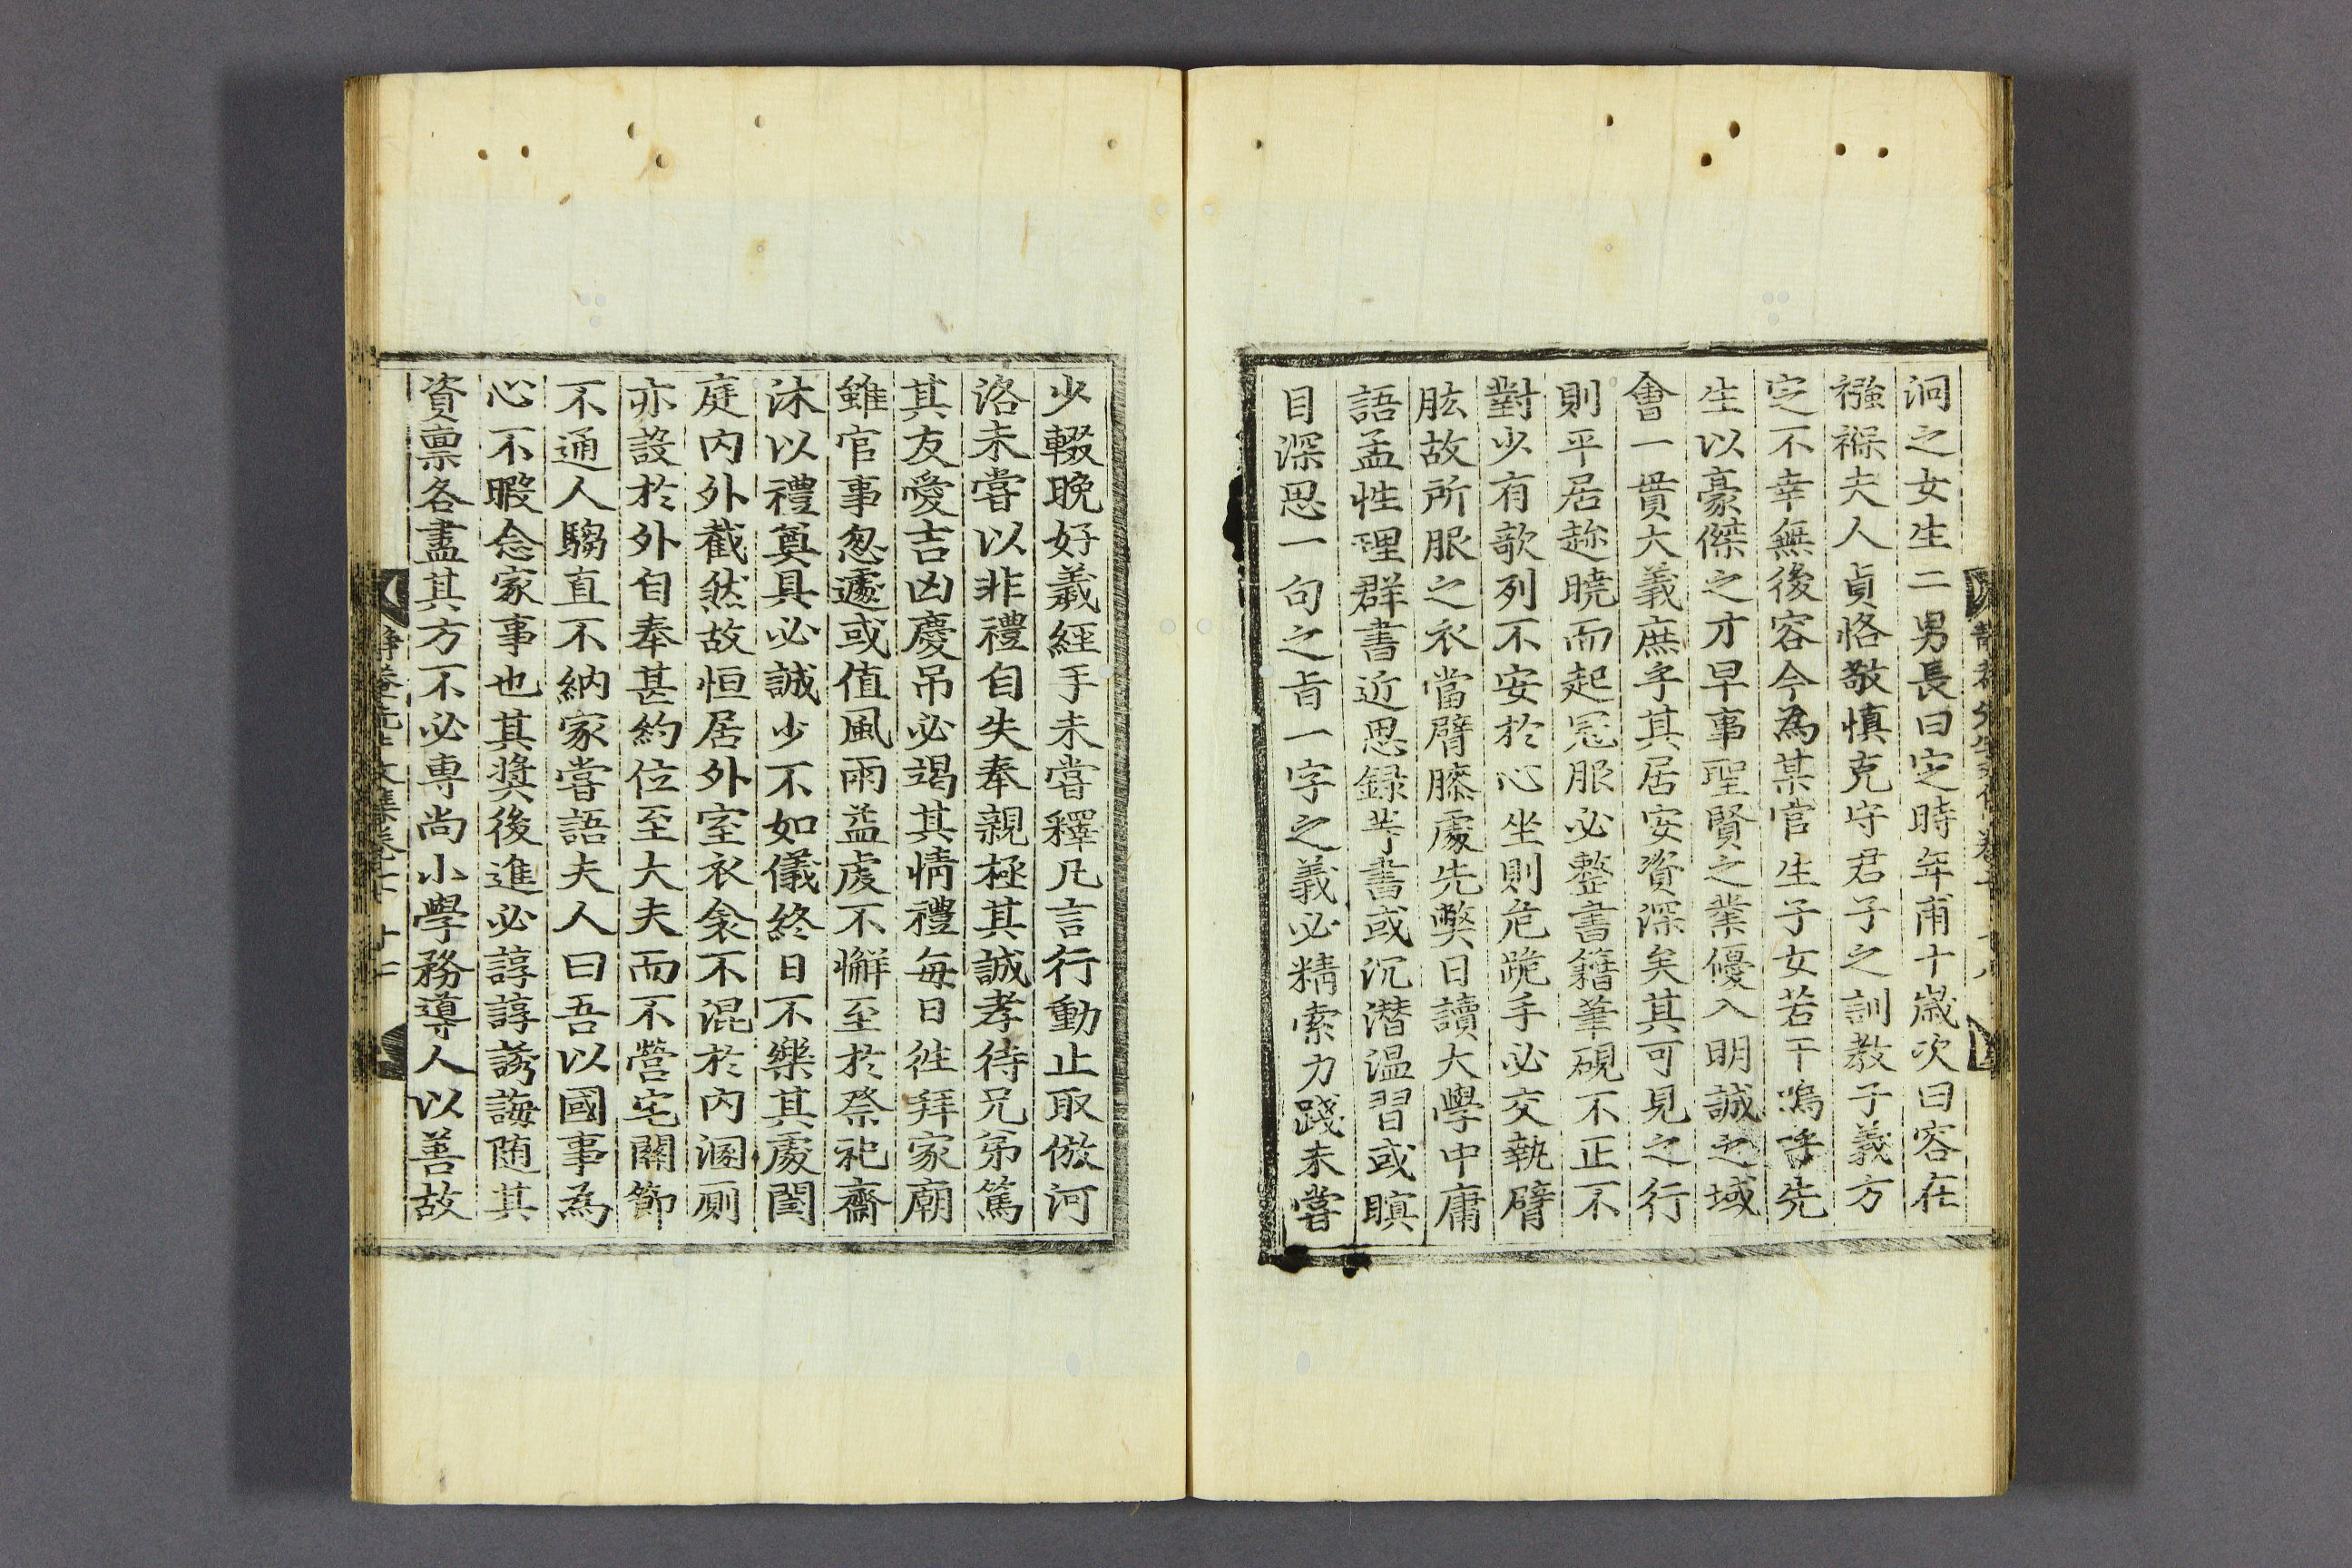 泂之女生二男長曰定時年甫十歲次曰容在
襁褓夫人貞恪敬愼克守君子之訓敎子義方
定不幸無後容今爲某官生子女若干嗚呼先
生以豪傑之才早事聖賢之業優入明誠之域
會一貫大義庶乎其居安資深矣其可見之行
則平居趂曉而起冠服必整書籍筆硯不正不
對少有歌列不安於心坐則危跪手必交執臂
肱故所服之衣當臂膝處先弊日讀大學中庸
語孟性理群書近思錄等書或沉潜温習或瞑
目深思一句之旨一字之義必精索力踐未嘗
少輟晚好羲經手未嘗釋凡言行動止取倣河
洛未嘗以非禮自失奉親極其誠孝待兄弟篤
其友愛吉凶慶吊必竭其情禮每日徃拜家廟
雖官事怱遽或值風雨益虔不懈至於祭祀齋
沐以禮奠具必誠少不如儀終日不樂其處閨
庭內外截然故恒居外室衣衾不混於內溷厠
亦設於外自奉甚約位至大夫而不營宅關節
不通人騶直不納家嘗語夫人曰吾以國事爲
心不暇念家事也其奬後進必諄諄誘誨随其
資禀各盡其方不必專尚小學務導人以善故